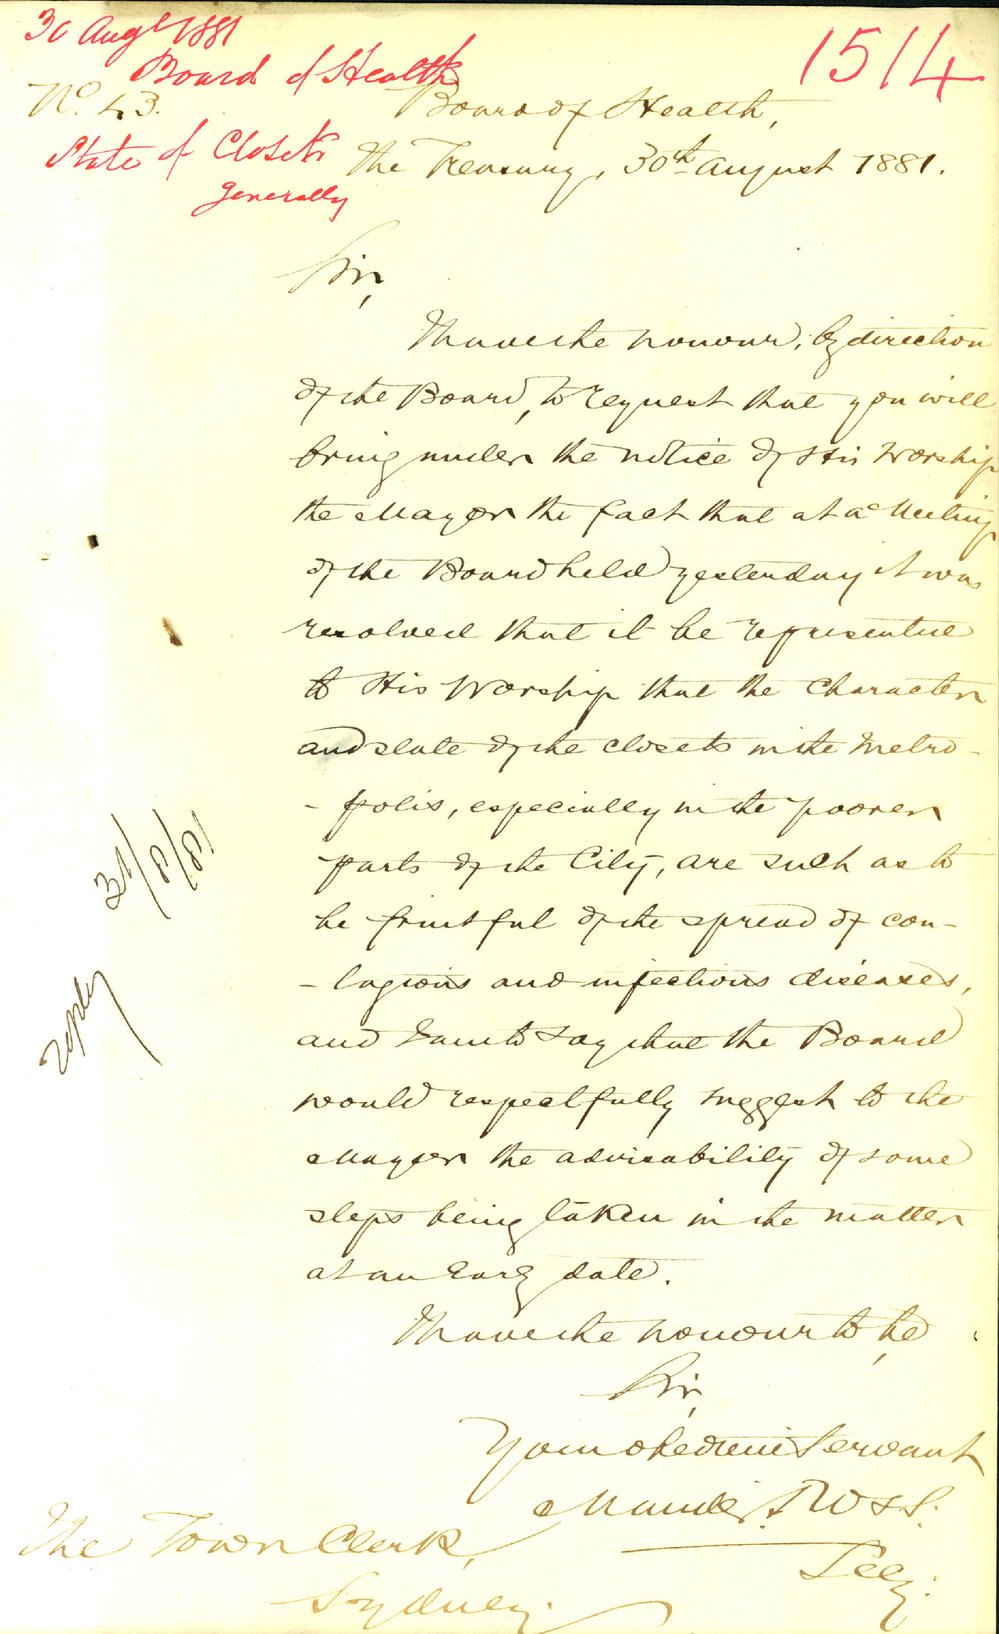 30 Augt 1881
1514
Board of Health
No. 43.
Board of Health,
State of Closets
generally
The Treasury, 30th August 1881.
Sir,
I have the honour, by direction
of the Board, to request that you will
bring under the notice of His Worship
the Mayor the fact that at a Meeting
of the Board held yesterday it was
resolved that it be represented
to His Worship that the Character
and state of the closets in the Metro-
-polis, especially in the poorer
parts of the City, are such as to
be fruitful of the spread of con-
-tagious and infectious diseases,
and I am to say that the Board
would respectfully suggest to the
Mayor the advisability of some
steps being taken in the matter
at an early date.
I have the honour to be,
Sir,
Your obedient Servant
Secy.
The Town Clerk,
Sydney.
reply 31/8/81